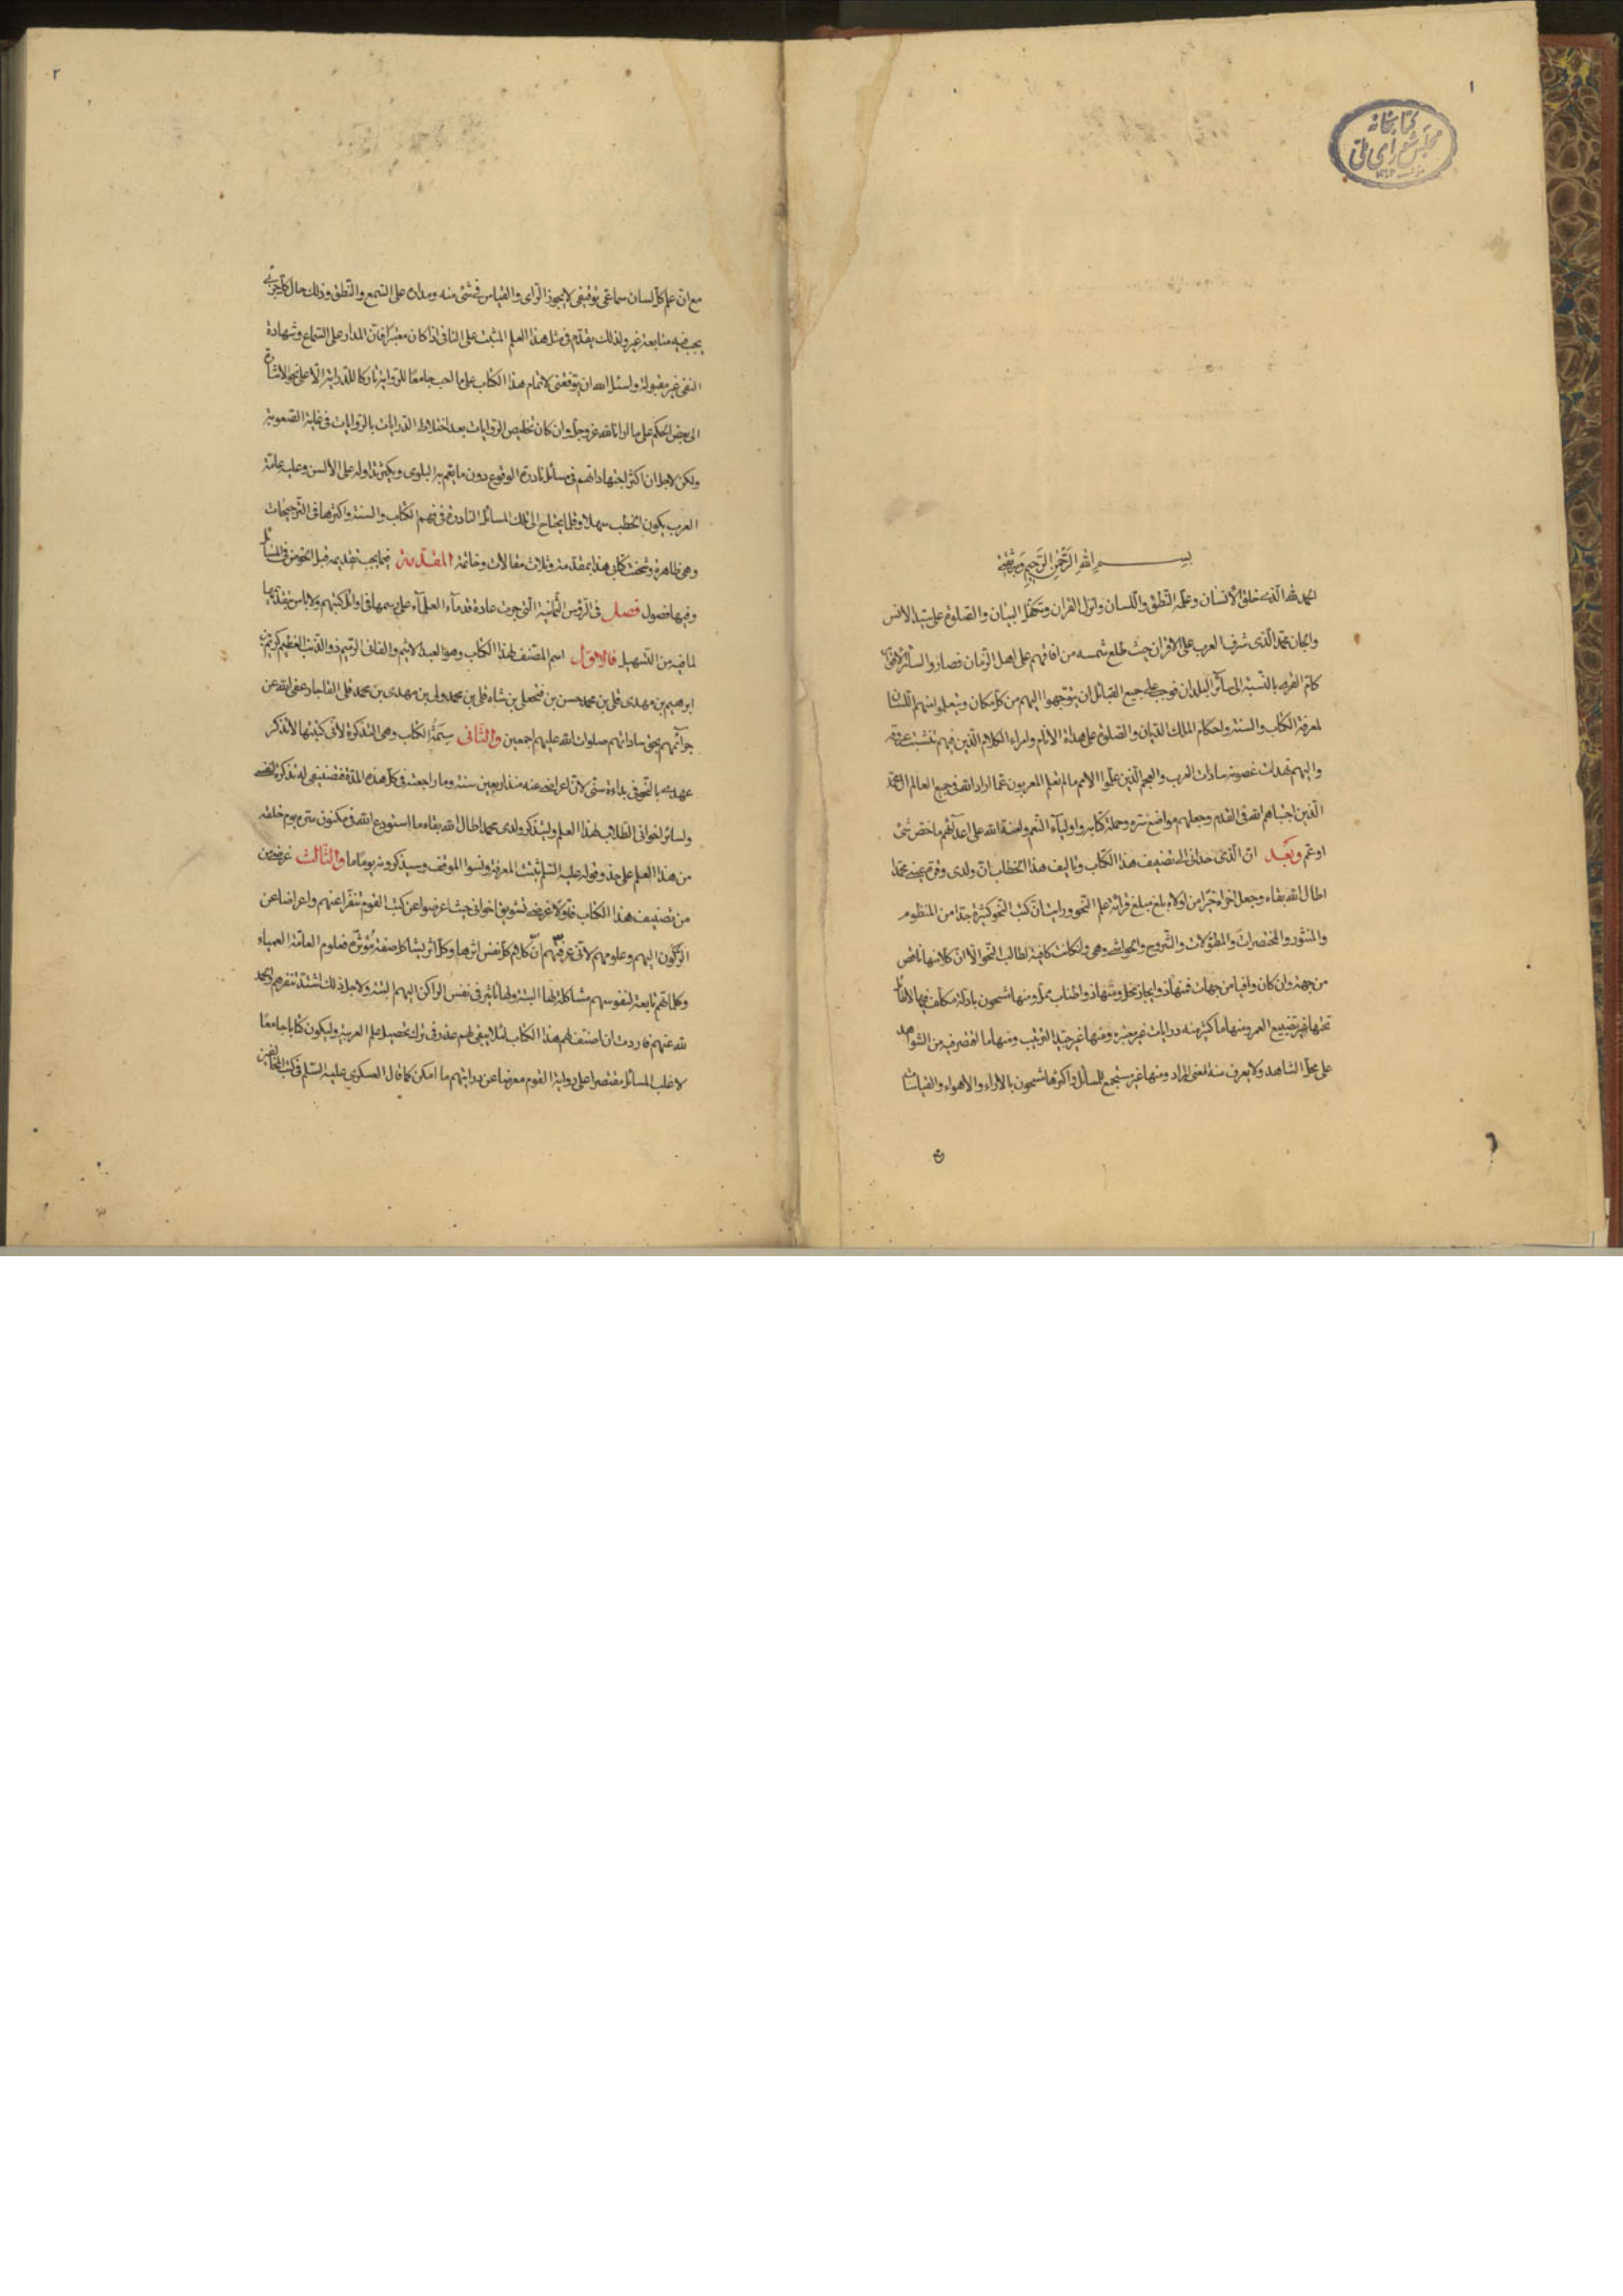 ١
كتابخانه
مجلس شورای ملی
بسم الله الرحمن الرحيم وبه ثقتى
الحمد لله الذى خلق الانسان وعلمه النطق واللسان وانزل القران وتكفل البيان والصلوة على سيد الانس
والجان محمد الذى شرف العرب على الاقران حيث طلع شمسه من افاقهم على اهل الزمان فصار
كام القرى بالنسبة الى سائر البلدان فوجب على جميع القبائل ان يتوجهوا اليهم من كل مكان ويتعلموا منهم اللسان
لمعرفة الكتاب والسنة واحكام الملك الديان والصلوة على هداة الانام وامراء الكلام الذين فيهم تنشبت عروقه
واليهم تهدلت غصونه سادات العرب والعجم الذين علموا الامم ما لم يعلم المعربون عما اراد الله فى جميع العالم ال محمد
الذين اجتباهم الله فى القدم وجعلهم مواضع سره وحملة كتابه واولياء النعم ولعنة الله على اعدائهم ما خص شئ
او عم وبعد ان الذى حدانى الى تصنيف هذا الكتاب وتاليف هذا الخطاب ان ولدى وقرة عينى محمدا
اطال الله بقاه وجعل اخراه خيرا من اولاه بلغ مبلغ قرائة علم النحو ورايت ان كتب النحو كثيرة جدا من المنظوم
والمنثور والمختصرات والمطولات والشروح والحواشى وهى وان كانت كافية لطالب النحو الا ان كلا منها ناقص
من جهة وان كان وافيا من جهات فمنها ذو ايجاز مخل ومنها ذو اطناب ممل ومنها مشحون بادلة متكلف فيها لا فائدة
تحتها غير تضييع العمر ومنها ما اكثر منه درايات غير معتبره ومنها غير جيد الترتيب ومنها ما اقتصر فيه من الشواهد
على محل الشاهد ولا يعرف منه المعنى المراد ومنها غير مستجمع للمسائل واكثرها مشحون بالاراء والاهواء والقياسات
٢
مع ان علم كل لسان سماعى توقيفى لا يجوز الراى والقياس فى شئ منه ومداره على السمع والنطق وذلك حال كل جزئى
يجب فيه متابعة غير ولذلك يقدم فى مثل هذا العلم المثبت على النافى اذا كان معتبرا فان المدار على السماع وشهادة
النفى غير مقبولة واسئل الله ان يوفقنى لاتمام هذا الكتاب على ما احب جامعا للرواية تاركا للدراية الا على نحو الاشارة
الى بعض الحكم على ما ارانا الله عز وجل وان كان تخليص الروايات بعد اختلاط الدرايات بالروايات فى غاية الصعوبة
ولكن لاجل ان اكثر اجتهاداتهم فى مسائل نادرة الوقوع دون ما يعم به البلوى ويكثر تداوله على الالسن وعليه عامة
العرب يكون الخطب سهلا وقلما يحتاج الى تلك المسائل النادرة فى فهم الكتاب والسنة واكثرها فى الترجيحات
وهى ظاهرة وتمت كتابى هذا بمقدمة وثلاث مقالات وخاتمة المقدمة فيما يجب تقديمه قبل الخوض فى المسائل
وفيها فصول فصل فى الرؤس الثمانية التى جرت عادة قدماء العلماء على رسمها فى اوائل كتبهم ولا باس بتقديمها
لما فيه من التسهيل فالاول اسم المصنف لهذا الكتاب وهو العبد الاثيم والفانى الرميم ذو الذنب العظيم كريم بن
ابرهيم بن مهدى قلى بن محمد حسن بن فتحعلى بن شاه قلى بن محمد ولى بن مهدى بن محمد قلى القاجار عفى الله عن
جرائمهم بحق ساداتهم صلوات الله عليهم اجمعين والثانى سمة الكتاب وهى التذكرة لانى كتبتها لاتذكر
عهدى بالنحو فى بداءة سنى لان اعراضى عنه منذ اربعين سنة وما راجعته فى كل هذه المدة فتصنيفى له تذكرة لنفسى
ولسائر اخوانى الطلاب لهذا العلم وليتذكر ولدى محمد اطال الله بقاه ما استودع الله فى مكنون سره يوم خلقه
من هذا العلم على حذو قوله عليه السلم ثبتت المعرفة ونسوا الموقف وسيذكرونه يوما ما والثالث غرضى من
من تصنيف هذا الكتاب فاولا غرضى تشويق اخوانى حيث اعرضوا عن كتب القوم تنفرا عنهم واعراضا عن
الركون اليهم وعلومهم لانى عرفتهم ان كلام كل نفس اثرها وكل اثر يشاكل صفة مؤثره فعلوم العامة العمياء
وكلماتهم تابعة لنفوسهم مشاكلة لها البتة ولها تاثير فى نفس الراكن اليهم البتة ولاجل ذلك اشتد تنفرهم والحمد
لله عنهم فاردت ان اصنف لهم هذا الكتاب لئلا يبقى لهم عذر فى ترك تحصيل علم العربية وليكون كتابا جامعا
لاغلب المسائل مقتصرا على رواية القوم معرضا عن درايتهم ما امكن كما قال العسكرى عليه السلم فى كتب